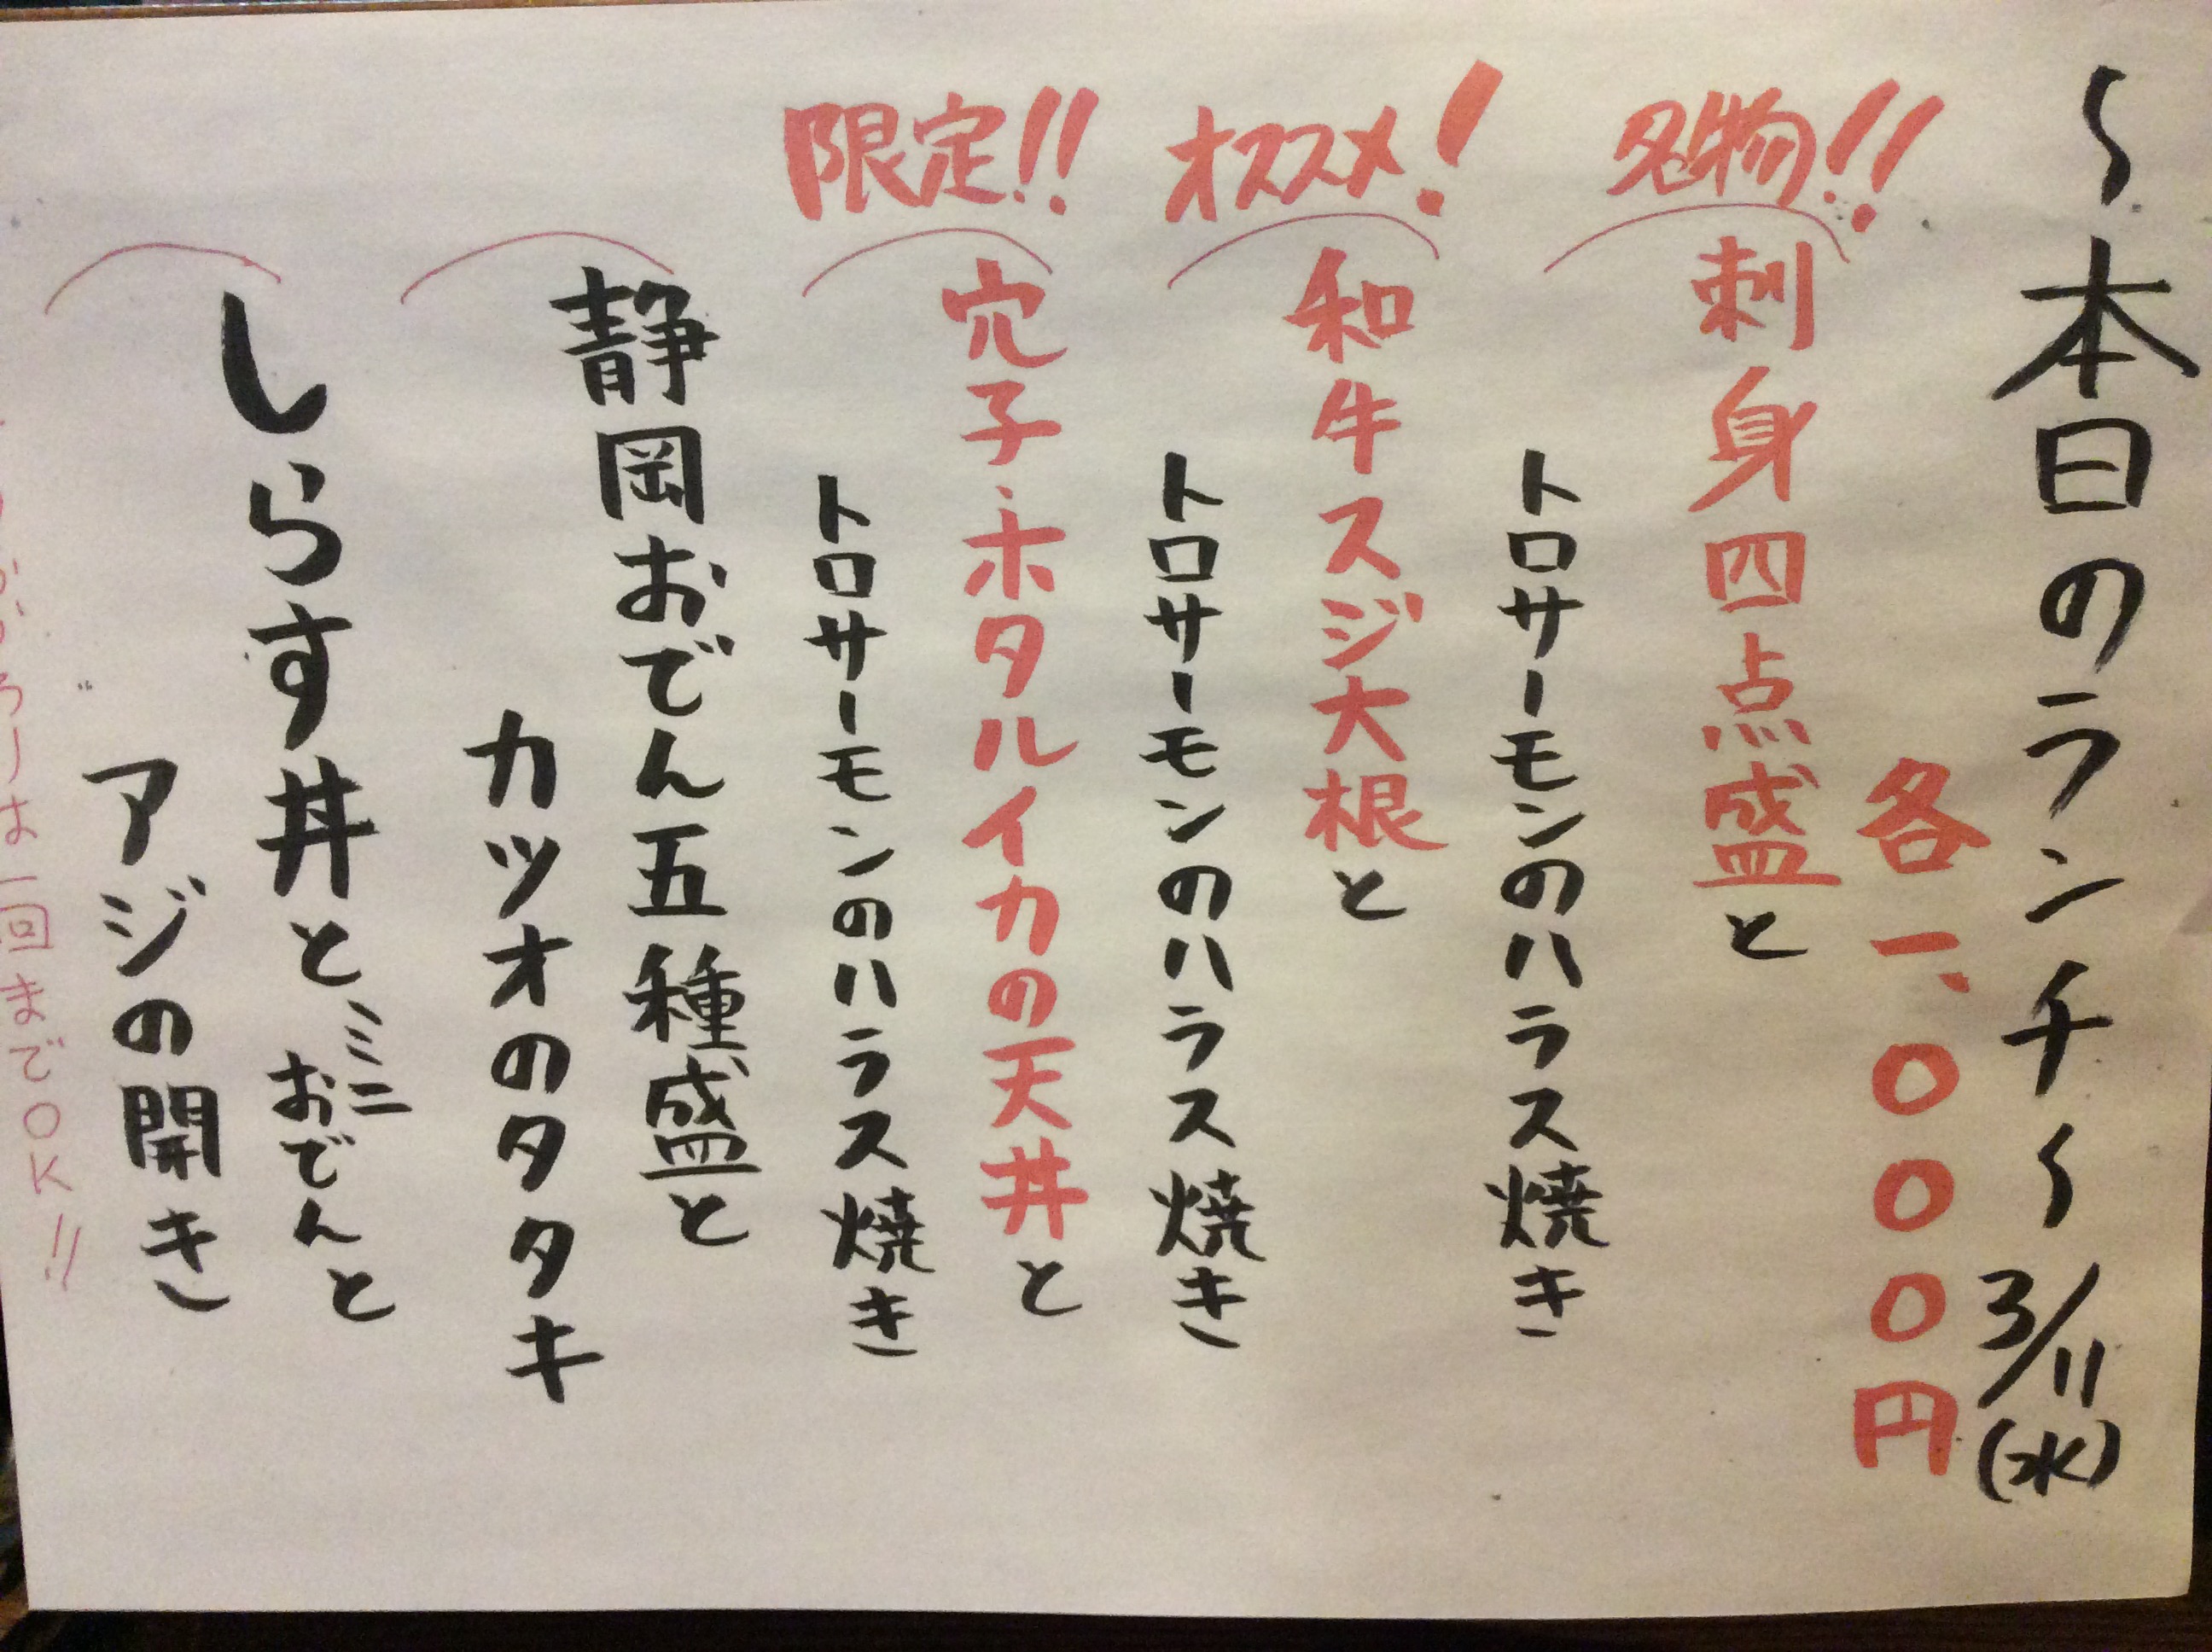 ～本日のランチ～ 3/11(水)
各一、〇〇〇円
名物!!
刺身四点盛と
トロサーモンのハラス焼き
オススメ!
和牛スジ大根と
トロサーモンのハラス焼き
限定!!
穴子・ホタルイカの天丼と
トロサーモンのハラス焼き
静岡おでん五種盛と
カツオのタタキ
しらす丼とミニおでんと
アジの開き
は一回までOK!!